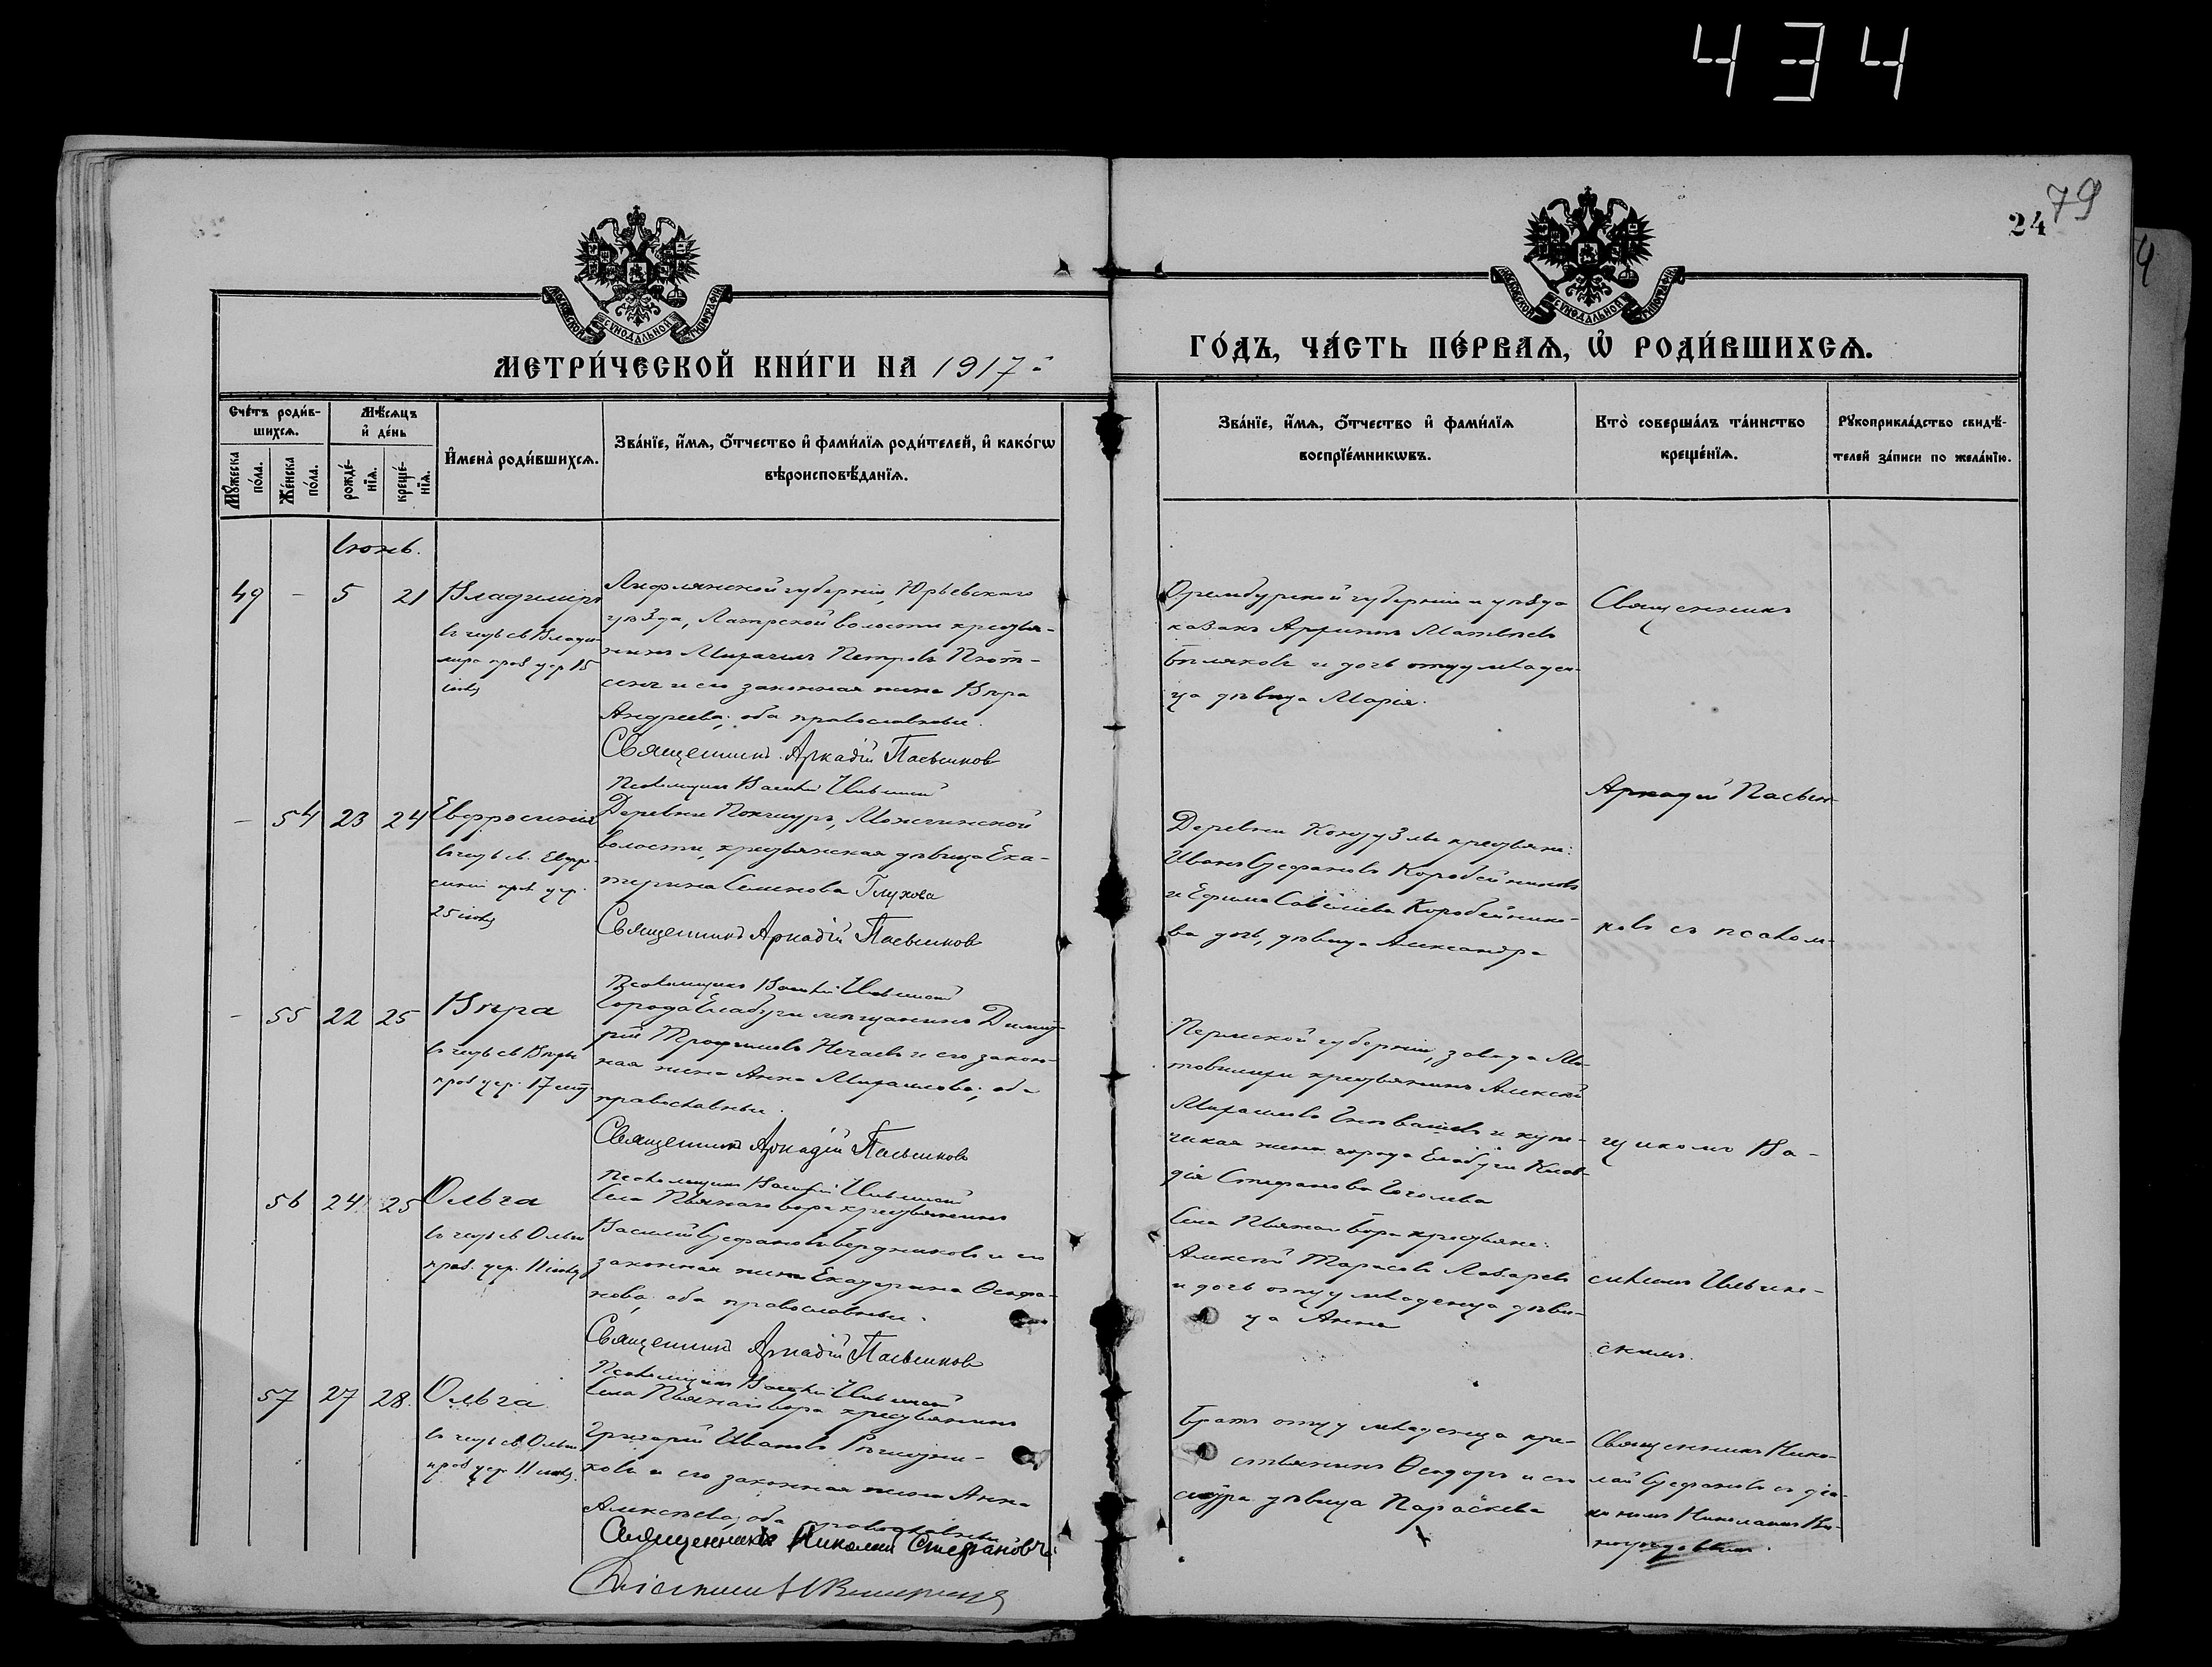 434
79
24
4
МОСКОВСКОЙ СѴНОДАЛЬНОЙ ТИПОГРАФІИ
МОСКОВСКОЙ СѴНОДАЛЬНОЙ ТИПОГРАФІИ
МЕТРИ́ЧЕСКОЙ КНИ́ГИ НА 1917
ГО́ДЪ, ЧА́СТЬ ПЕ́РВАѦ, Ѡ҆ РОДИ́ВШИХСѦ.
Сче́тъ роди́в-
шихсѧ.
Мѣ́сѧцъ
и҆ де́нь
Мꙋ́жеска
по́ла.
Же́нска
по́ла.
рожде́-
нїѧ.
креще́-
нїѧ.
И҆мена̀ роди́вшихсѧ.
Зва́нїе, и҆́мѧ, ѻ҆́тчество и҆ фами́лїѧ роди́телей, и҆ како́гѡ
вѣроисповѣ́данїѧ.
Зва́нїе, и҆́мѧ, ѻ҆́тчество и҆ фами́лїѧ
воспрїе́мникѡвъ.
Кто̀ соверша́лъ та́инство
креще́нїѧ.
Рꙋкоприкла́дство свидѣ́-
телей за́писи по жела́нїю.
Іюнь.
49 - 5 21 Владиміръ
въ честь св Влади-
мира праз цер 15
іюля
Лифляндской губерніи, Юрьевскаго
уѣзда, волости крестья-
нинъ Михаилъ Петровъ
и его законная жена Вѣра
Андреева; оба православные.
Священникъ Аркадій Пасынков
Псаломщикъ Василій Ильинскій
Оренбургской губерніи и уѣзда
казакъ Матвѣевъ
и дочь отцу младен-
ца дѣвица Марія.
Священникъ
Аркадій Пасын-
ковъ съ псалом-
щикомъ Ва-
силіемъ Ильин-
скимъ.
- 54 23 24 Евфросинія
въ честь св. Евфро-
синіи праз цер.
25 іюня
Деревни, Можгинской
волости, крестьянская дѣвица Ека-
терина Семенова Глухова
Священникъ Аркадій Пасынков
Псаломщикъ Василій Ильинскій
Деревни крестьяне:
Иванъ Стефановъ Коробейниковъ
и Ефима Савельева Коробейнико-
ва дочь, дѣвица Александра
- 55 22 25 Вѣра
въ честь св Вѣры
праз цер. 17 сент
Города Елабуги мѣщанинъ Димит-
рій Трофимовъ Нечаевъ и его закон-
ная жена Анна Михаилова; оба
православные.
Священникъ Аркадій Пасынков
Псаломщикъ Василій Ильинскій
Пермской губерніи, завода Мо-
товилихи крестьянинъ Алексѣй
Михаиловъ и купе-
ческая жена города Елабуги Клав-
дія Стефанова Гоголева
56 24 25 Ольга
въ честь св Ольги
праз. цер. 11 іюля
Села Пьянаго бора крестьянинъ
Василій Стефановъ Бердниковъ и его
законная жена Екатерина Ѳеофа-
нова; оба православные.
Священникъ Аркадій Пасынков
Псаломщикъ Василій Ильинскій
Села Пьянаго бора крестьяне:
Алексѣй Тарасовъ Лазаревъ
и дочь отцу младенца дѣви-
ца Анна
57 27 28 Ольга
въ честь св Ольги
праз цер 11 іюля.
Села Пьянаго бора крестьянинъ
Григорій Ивановъ
и его законная жена Анна
Алексѣева; оба православные
Священникъ Николай Стефановъ.
Діаконъ Н
Братъ отцу младенца кре-
стьянинъ Ѳеодоръ и его
сестра дѣвица Параскева
Священникъ Нико-
лай Стефановъ съ діа-
кономъ Николаемъ